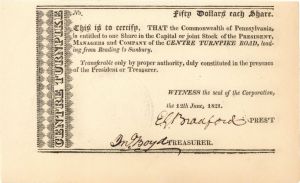 CENTRE TURNPIKE
No. Fifty Dollars each Share.
This is to certify, THAT the Commonwealth of Pennsylvania,
is entitled to one Share in the Capital or joint Stock of the PRESIDENT,
MANAGERS and COMPANY of the CENTRE TURNPIKE ROAD, lead-
ing from Reading to Sunbury.
Transferable only by proper authority, duly constituted in the presence
of the President or Treasurer.
WITNESS the seal of the Corporation,
the 12th June, 1821.
Bradford PRES'T
Jn. Boyd TREASURER.